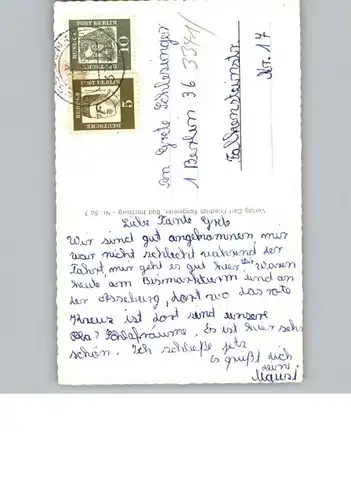 Liebe Tante Grete
Wir sind gut angekommen mir
war nicht schlecht während der
Fahrt, mir geht es gut hier. Wir waren
heute am Bismarkturm und an
der Asseburg, dort wo das rote
Kreuz ist dort sind unsere
Schlafräume. Es ist hier sehr
schön. Ich schließe jetz
es grüßt dich
dein
An Grete Schlesinger
1 Berlin 36
Falkensteinstr.
Nr. 17
Verlag Carl Friedrich Fangmeier, Bad Harzburg - Nr.
DEUTSCHE BUNDESPOST BERLIN
10
DEUTSCHE BUNDESPOST BERLIN
5